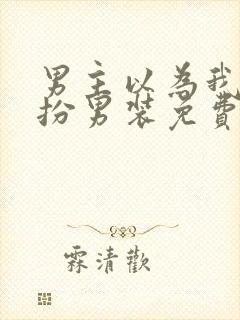 男主以為我
扮男裝免費
霖清歡